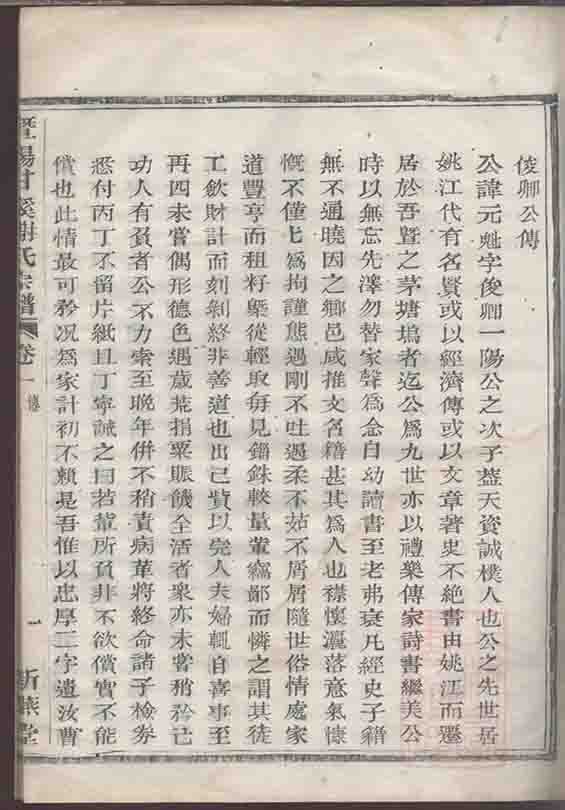 俊卿公傳
公諱元魁字俊卿一陽公之次子蓋天資誠樸人也公之先世居
姚江代有名賢或以經濟傳或以文章著史不絕書由姚江而遷
居於吾暨之茅塘塢者迄公爲九世亦以禮樂傳家詩書繼美公
時以無忘先澤勿替家聲爲念自幼讀書至老弗衰凡經史子籍
無不通曉因之鄉邑咸推文名籍甚其爲人也襟懷灑落意氣慷
慨不僅匕爲拘謹態遇剛不吐遇柔不茹不屑屑隨世俗情處家
道豐亨而租籽槩從輕取每見錙銖較量輩竊鄙而憐之謂其徒
工飲財計而刻剝終非善道也出己貲以完人夫婦輒自喜事至
再四未嘗偶形德色遇歲荒捐粟賑饑全活者衆亦未嘗稍矜己
功人有負者公不力索至晚年併不稍責病革將終命諸子檢券
悉付丙丁不留片紙且丁寧誡之曰若輩所負非不欲償實不能
償也此情最可矜况爲家計初不賴是吾惟以忠厚二字遺汝曹
暨陽甘溪謝氏宗譜 卷一 傳 一